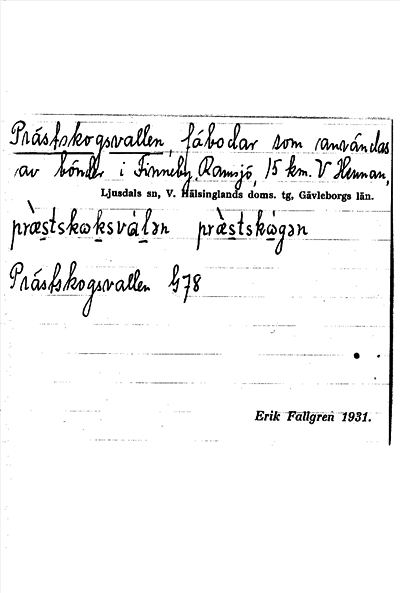 Prästskogsvallen, fäbodar som användas
av bönder i Finneby, Ramsjö, 15 km. V Hennan,
Ljusdals sn, V. Hälsinglands doms. tg, Gävleborgs län.
præ̀stskωksvál̥ən præ̀stskὼgən
Prästskogsvallen G78
Erik Fallgren 1931.